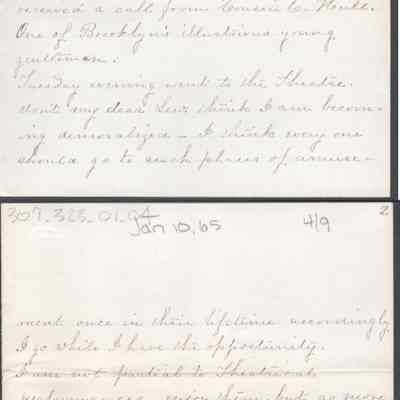 received a call from Cousin C. Hull.
One of Brooklyn's illustrious young
gentlemen.
Tuesday evening went to the Theatre.
don't my dear think I am becom-
ing demoralized - I think every one
should go to such places of amuse-
307-325-01-04
Jan 10, 65
4/9
2
ment once in their lifetime accordingly
I go while I have the opportunity.
I am not partial to Theatrical
performances, enjoy them, but no more